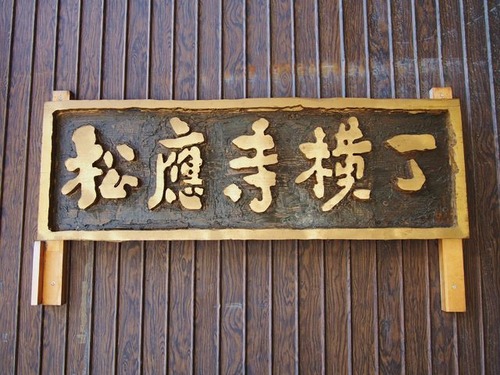 松應寺横丁